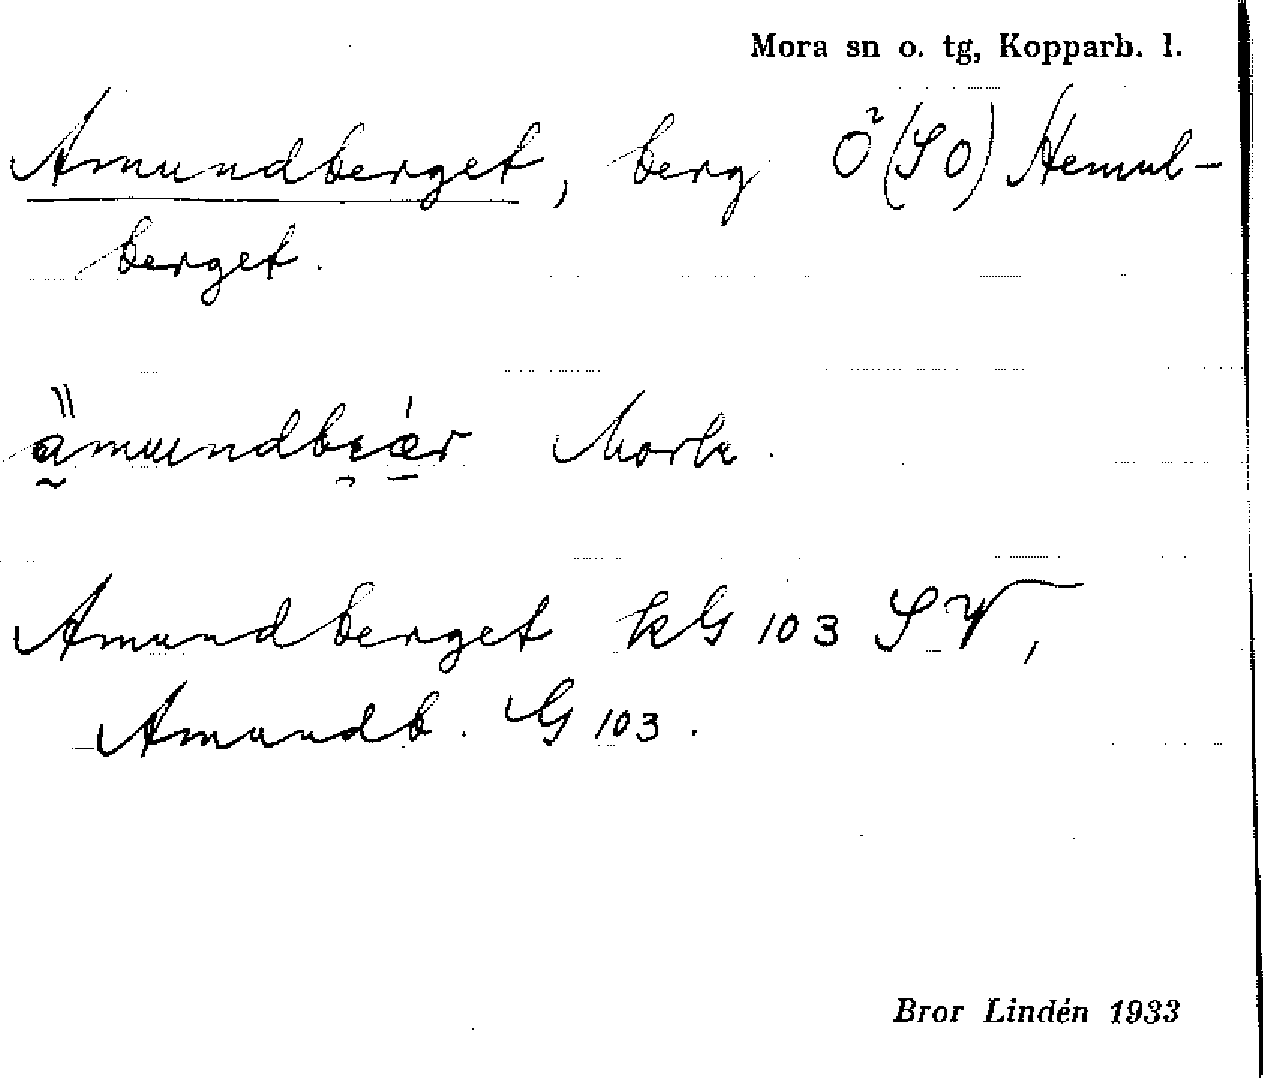 Mora sn o. tg, Kopparb. l.
Amundberget, berg Ö (SO) Hemul-
berget.
Mork.
Amundberget kG 103 SV,
Amundb. G 103.
Bror Lindén 1933